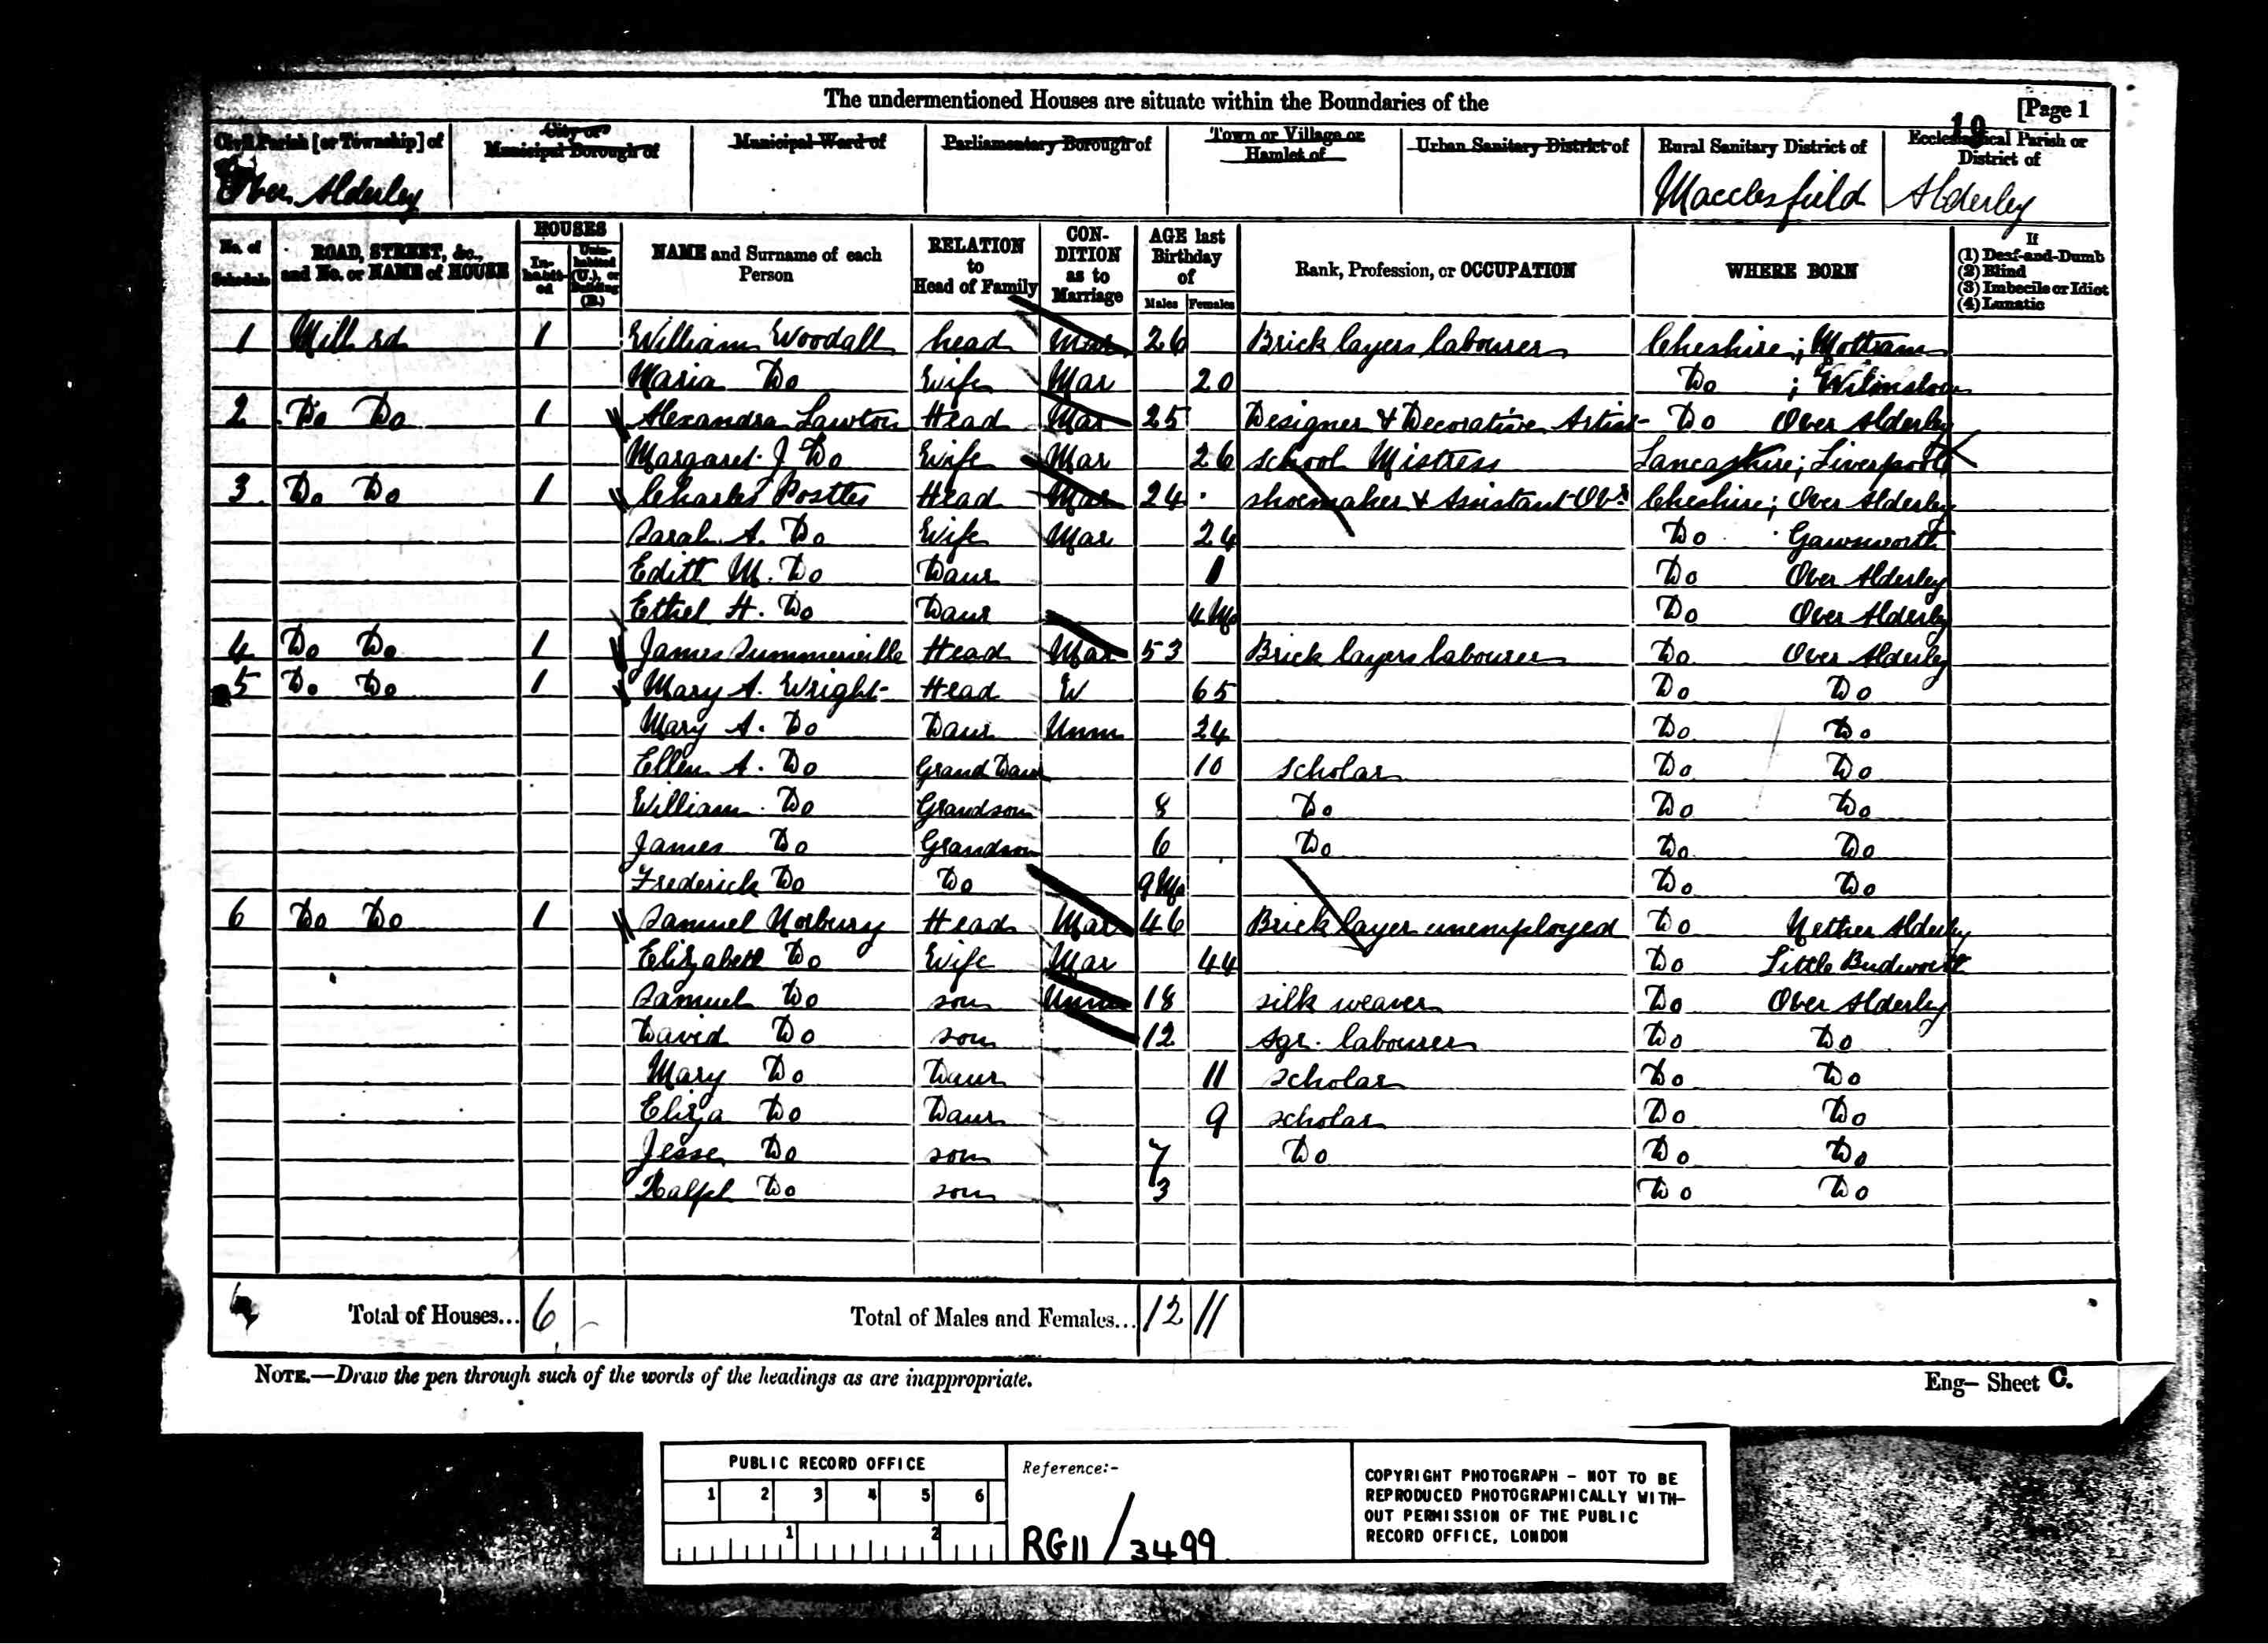 The undermentioned Houses are situate within the Boundaries of the
[Page 1
10
Civil Parish [or Township] of
City or Municipal Borough of
Municipal Ward of
Parliamentary Borough of
Town or Village or Hamlet of
Urban Sanitary District of
Rural Sanitary District of
Ecclesiastical Parish or District of
Over Alderley
Macclesfield
Alderley
No. of Schedule
ROAD, STREET, &c., and No. or NAME of HOUSE
HOUSES
In-habit-ed
Unin-habited (U.), or Building (B.)
NAME and Surname of each Person
RELATION to Head of Family
CON-DITION as to Marriage
AGE last Birthday of
Males Females
Rank, Profession, or OCCUPATION
WHERE BORN
If
(1) Deaf-and-Dumb
(2) Blind
(3) Imbecile or Idiot
(4) Lunatic
1 Mill rd 1 William Woodall head Mar 26 Brick layers labourer Cheshire; Mottram
Maria Do Wife Mar 20 Do ; Wilmslow
2 Do Do 1 Alexandra Lawton Head Mar 25 Designer & Decorative Artist Do Over Alderley
Margaret J. Do Wife Mar 26 school Mistress Lancashire; Liverpool
3 Do Do 1 Charles Postles Head Mar 24 shoemaker & Assistant Ovr Cheshire; Over Alderley
Sarah A. Do Wife Mar 24 Do Gawsworth
Edith M. Do Daur 1 Do Over Alderley
Ethel H. Do Daur 4 Mo Do Over Alderley
4 Do Do 1 James Summerville Head Mar 53 Brick layers labourer Do Over Alderley
5 Do Do 1 Mary A. Wright Head W 65 Do Do
Mary A. Do Daur Unm 24 Do Do
Ellen A. Do Grand Daur 10 scholar Do Do
William Do Grandson 8 Do Do Do
James Do Grandson 6 Do Do Do
Frederick Do Do 9 Mo Do Do
6 Do Do 1 Samuel Norbury Head Mar 46 Brick layer unemployed Do Nether Alderley
Elizabeth Do Wife Mar 44 Do Little Budworth
Samuel Do son Unm 18 silk weaver Do Over Alderley
David Do son 12 Agr. labourer Do Do
Mary Do Daur 11 scholar Do Do
Eliza Do Daur 9 scholar Do Do
Jesse Do son 7 Do Do Do
Ralph Do son 3 Do Do
Total of Houses... 6 -
Total of Males and Females... 12 11
NOTE.—Draw the pen through such of the words of the headings as are inappropriate.
Eng– Sheet C.
PUBLIC RECORD OFFICE
1 2 3 4 5 6
1 2
Reference:-
RG11/3499
COPYRIGHT PHOTOGRAPH – NOT TO BE
REPRODUCED PHOTOGRAPHICALLY WITH-
OUT PERMISSION OF THE PUBLIC
RECORD OFFICE, LONDON